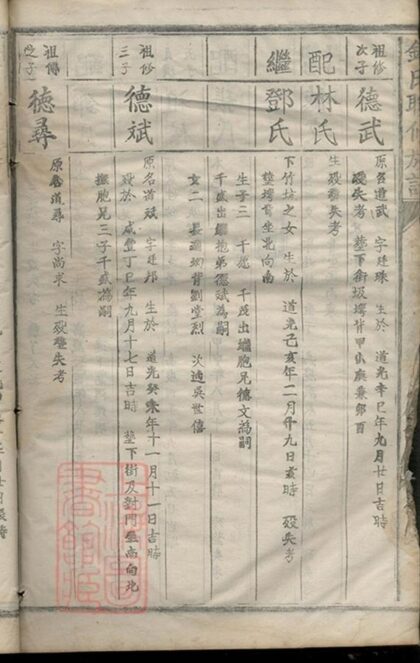 祖修次子
德武
原名道武 字廷珠 生於 道光辛巳年九月廿日吉時
歿失考 塟下街坂塆背甲山庚兼卯酉
配林氏
生歿塟失考
繼鄧氏
下竹坑之女 生於 道光己亥年二月廿九日亥時 歿失考
塟塆背坐北向南
生子三 千 千 出繼胞兄德文為嗣
千 出繼胞弟德斌為嗣
女二 長適 背劉堂烈 次適吳世僖
祖修三子
德斌
原名道斌 字廷邦 生於 道光癸未年十一月十一日吉時
歿於 咸豐丁巳年九月十七日吉時 塟下街及對門坐南向北
撫胞兄三子千 為嗣
祖傳之子
德尋
原名道尋 字尚求 生歿塟失考